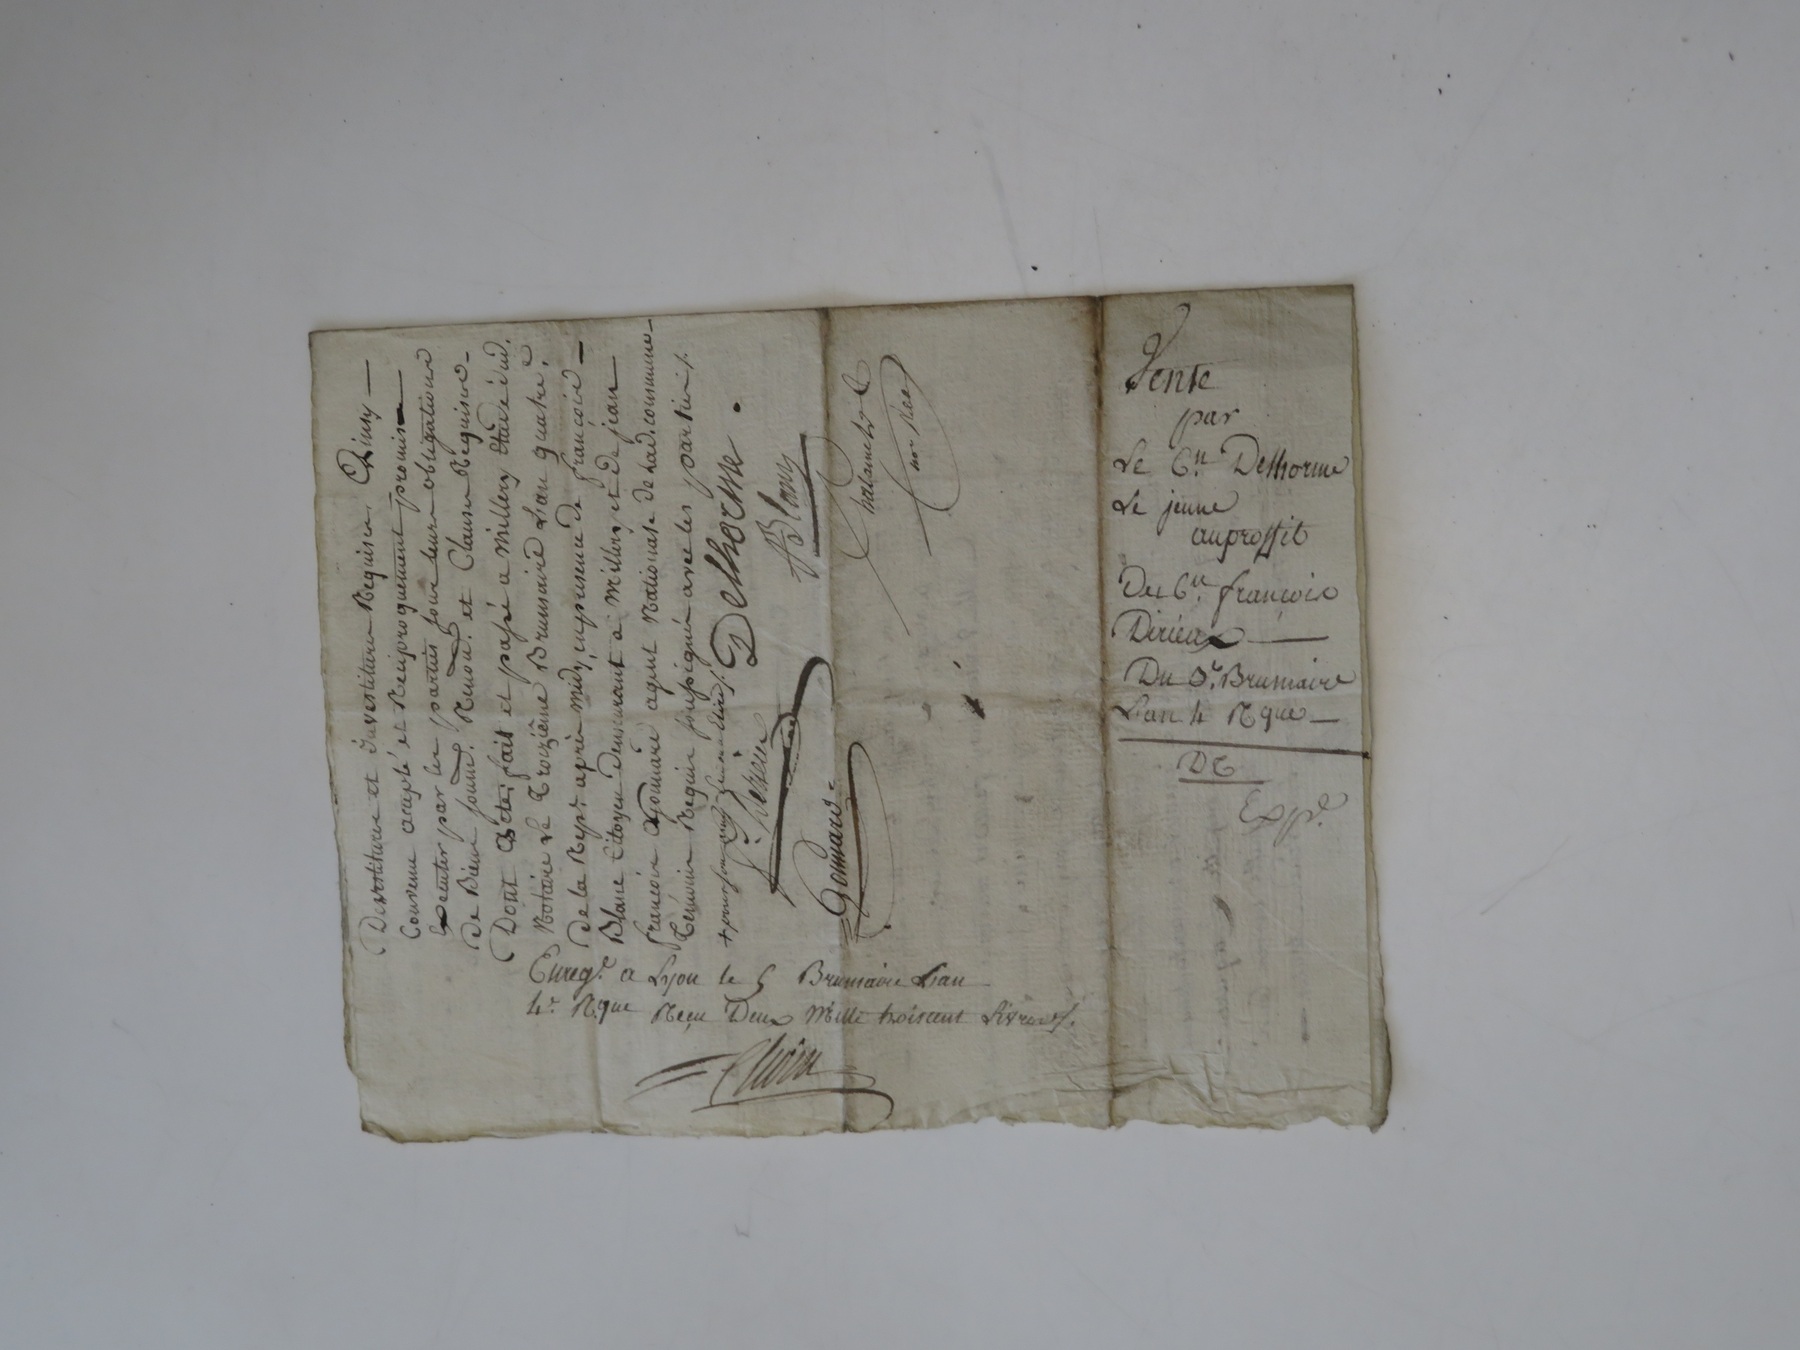 Devestiture et Investiture Requise, Ainsy —
Convenu accepté et Reciproquement promis —
Executer par les parties sous leurs obligations
de Biens soumis. Renon. et Clauses Requises —
Dont Acte, fait et passé a Millery Etude dud.
Notaire Le Troizième Brumaire L'an quatre.e
de la Rep.e après midy, en presence de francois —
Blanc Citoyen demeurant a Millery et de jean
francois Gonnard agent Nationale de lad. commune —
Temoins Requis soussignés avec les parties /.
Delhorme.
f. Derieu
Blanc
Gonnard
Enreg.é a Lyon le 5 Brumaire L'an
4.e R.que Reçu Deux Mille trois cent Livres /.
Vente
par
Le C.en Delhorme
Le jeune
au proffit
Du C.en francois
Dérieux —
Du 3.e Brumaire
L'an 4 R.que —
Exp.é